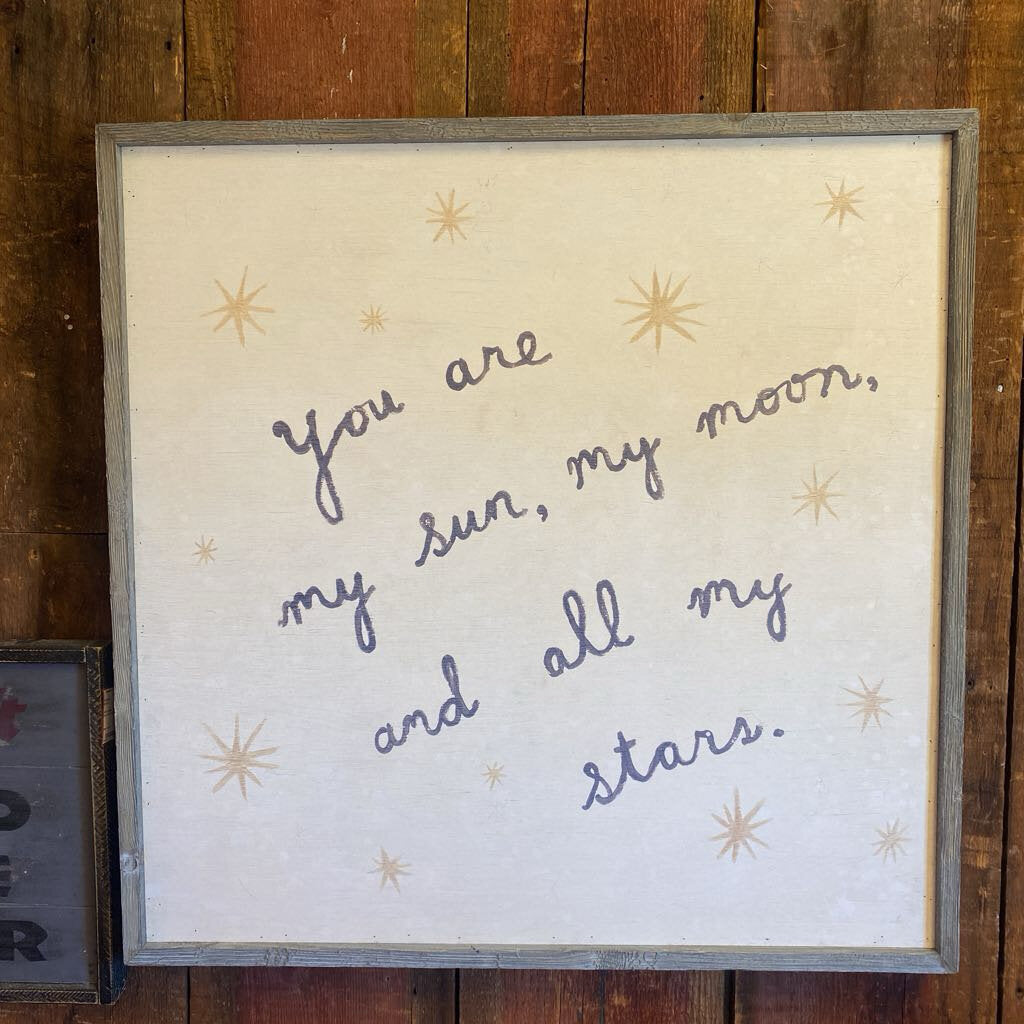 You are
my sun, my moon,
and all my
stars.